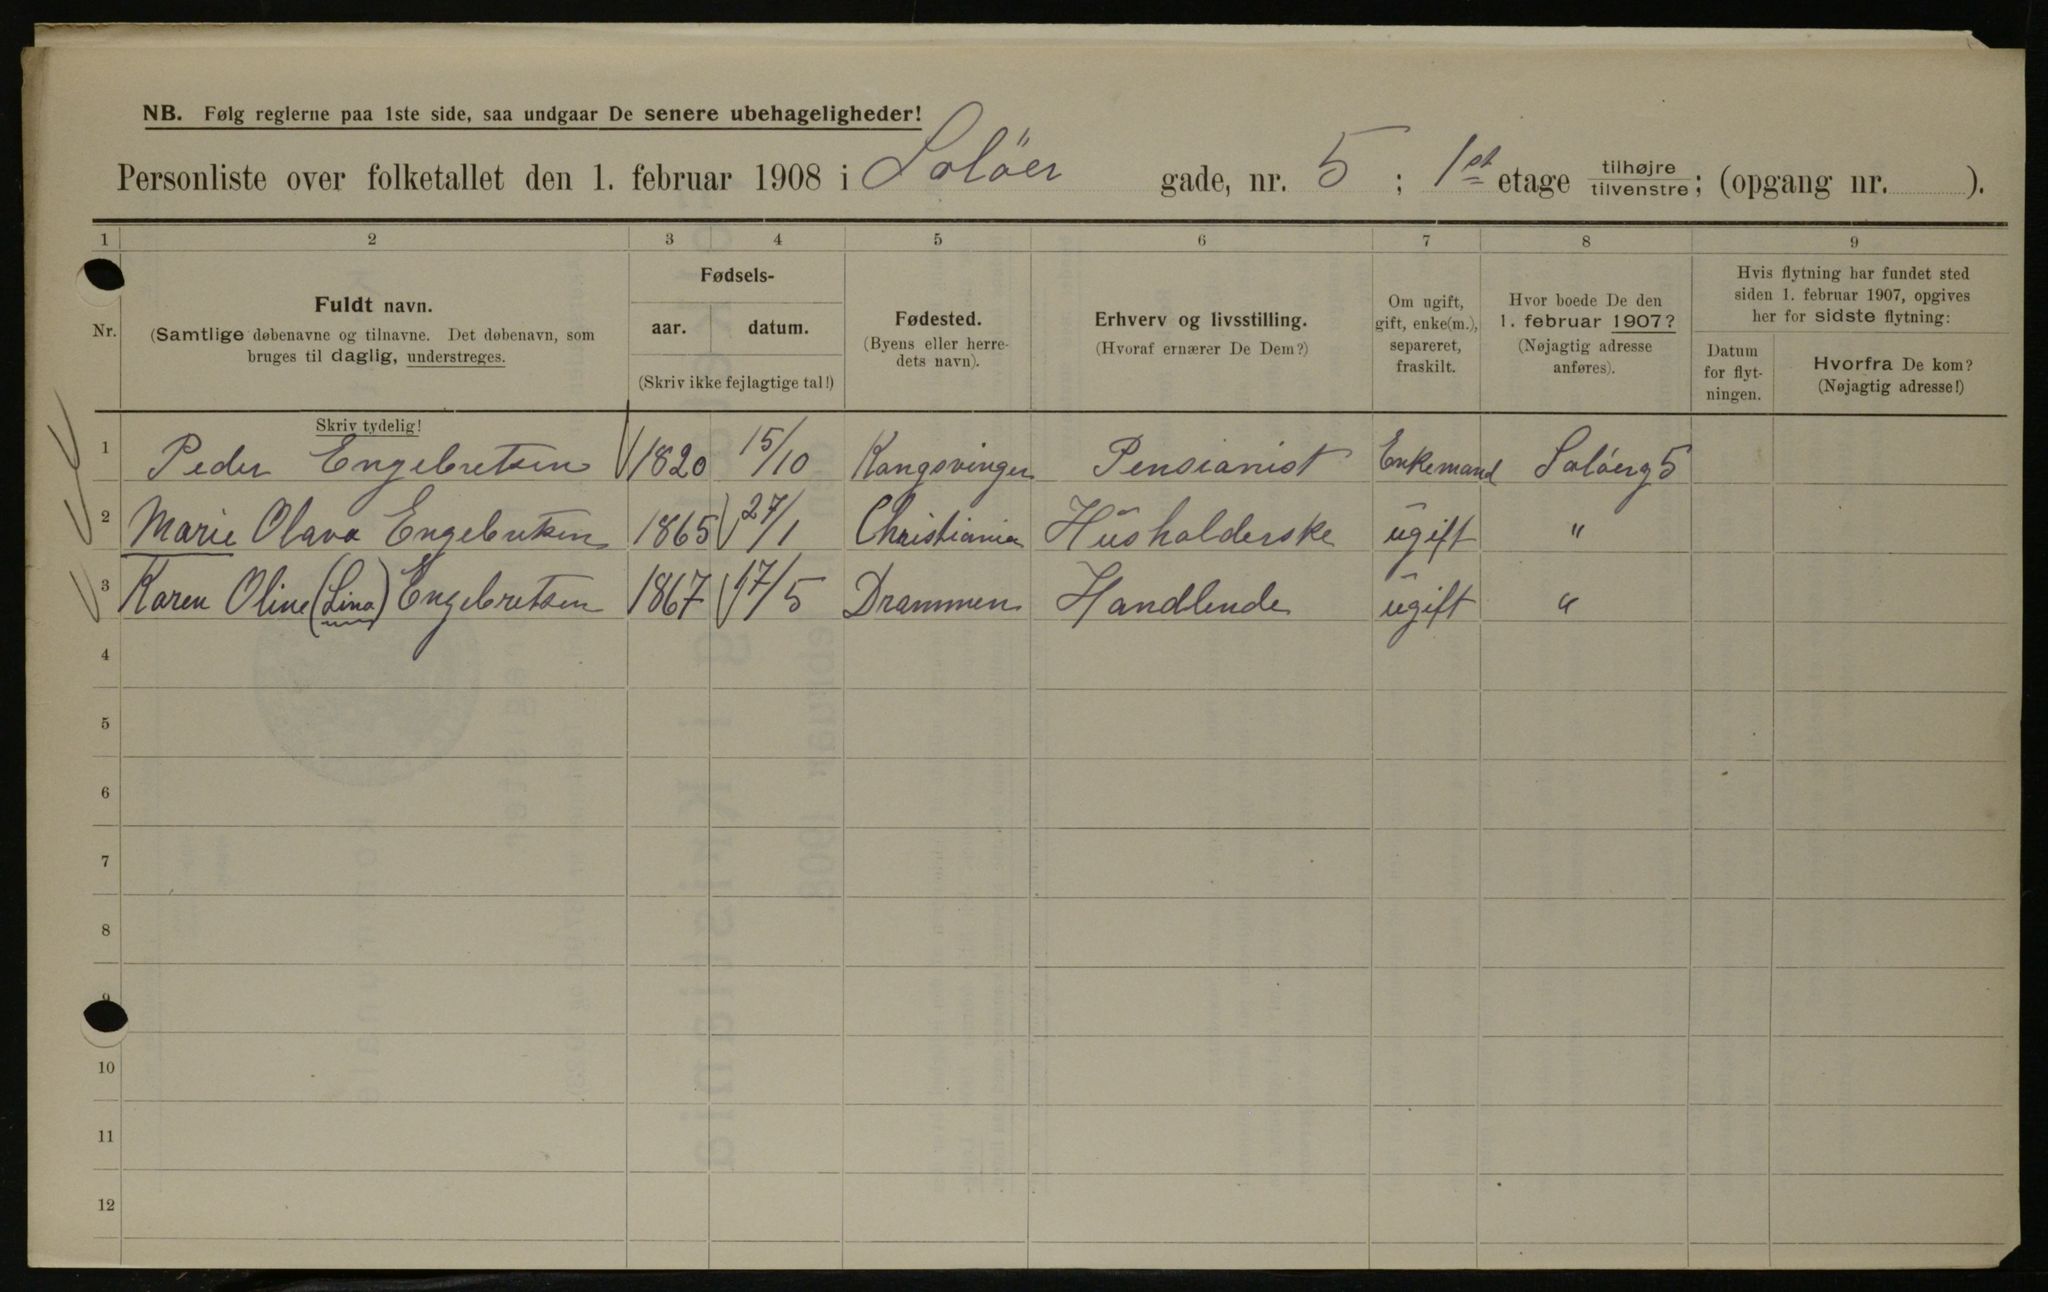 NB. Følg reglerne paa 1ste side, saa undgaar De senere ubehageligheder!
Personliste over folketallet den 1. februar 1908 i Solöer gade, nr. 5 ; 1st etage tilhøjre/tilvenstre; (opgang nr. ).
1 2 3 4 5 6 7 8 9
Nr.
Fuldt navn.
(Samtlige døbenavne og tilnavne. Det døbenavn, som
bruges til daglig, understreges.
Fødsels-
aar. datum.
(Skriv ikke fejlagtige tal!)
Fødested.
(Byens eller herre-
dets navn).
Erhverv og livsstilling.
(Hvoraf ernærer De Dem?)
Om ugift,
gift, enke(m.),
separeret,
fraskilt.
Hvor boede De den
1. februar 1907?
(Nøjagtig adresse
anføres).
Hvis flytning har fundet sted
siden 1. februar 1907, opgives
her for sidste flytning:
Datum
for flyt-
ningen.
Hvorfra De kom?
(Nøjagtig adresse!)
Skriv tydelig!
1 Peder Engebretsen 1820 15/10 Kongsvinger Pensianist Enkemand Solöerg 5
2 Marie Olava Engebretsen 1865 27/1 Christiania Husholderske ugift "
3 Karen Oline (Lina) Engebretsen 1867 17/5 Drammen Handlende ugift "
4
5
6
7
8
9
10
11
12